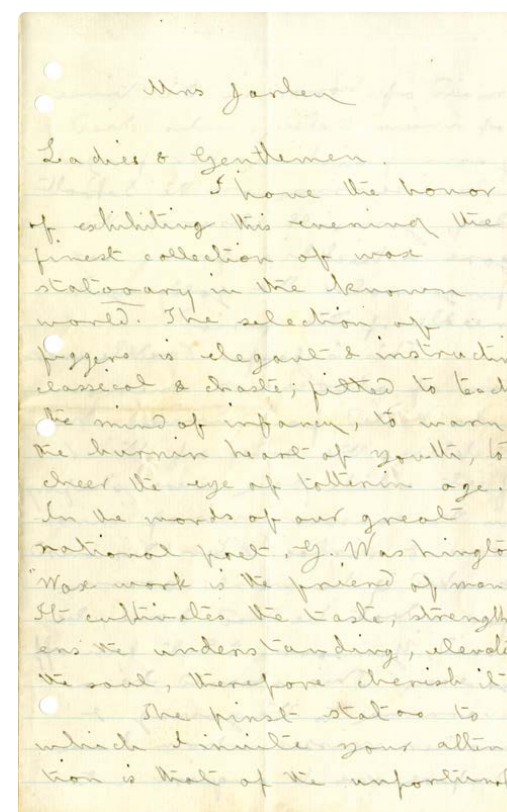 Mrs Jarley
Ladies & Gentlemen.
I have the honor
of exhibiting this evening the
finest collection of wax
statooary in the known
world. The selection of
figgers is elegant & instructi
classical & chaste; fitted to teach
the mind of infancy, to warm
the burnin heart of youth, to
cheer the eye of totterin age.
In the words of our great
national poet, G. Washingto
"Wax work is the friend of man
It cultivates the taste, strength
ens the understanding, elevate
the soul, therefore cherish it
The first statoo to
which I invite your atten
tion is that of the unfortunat